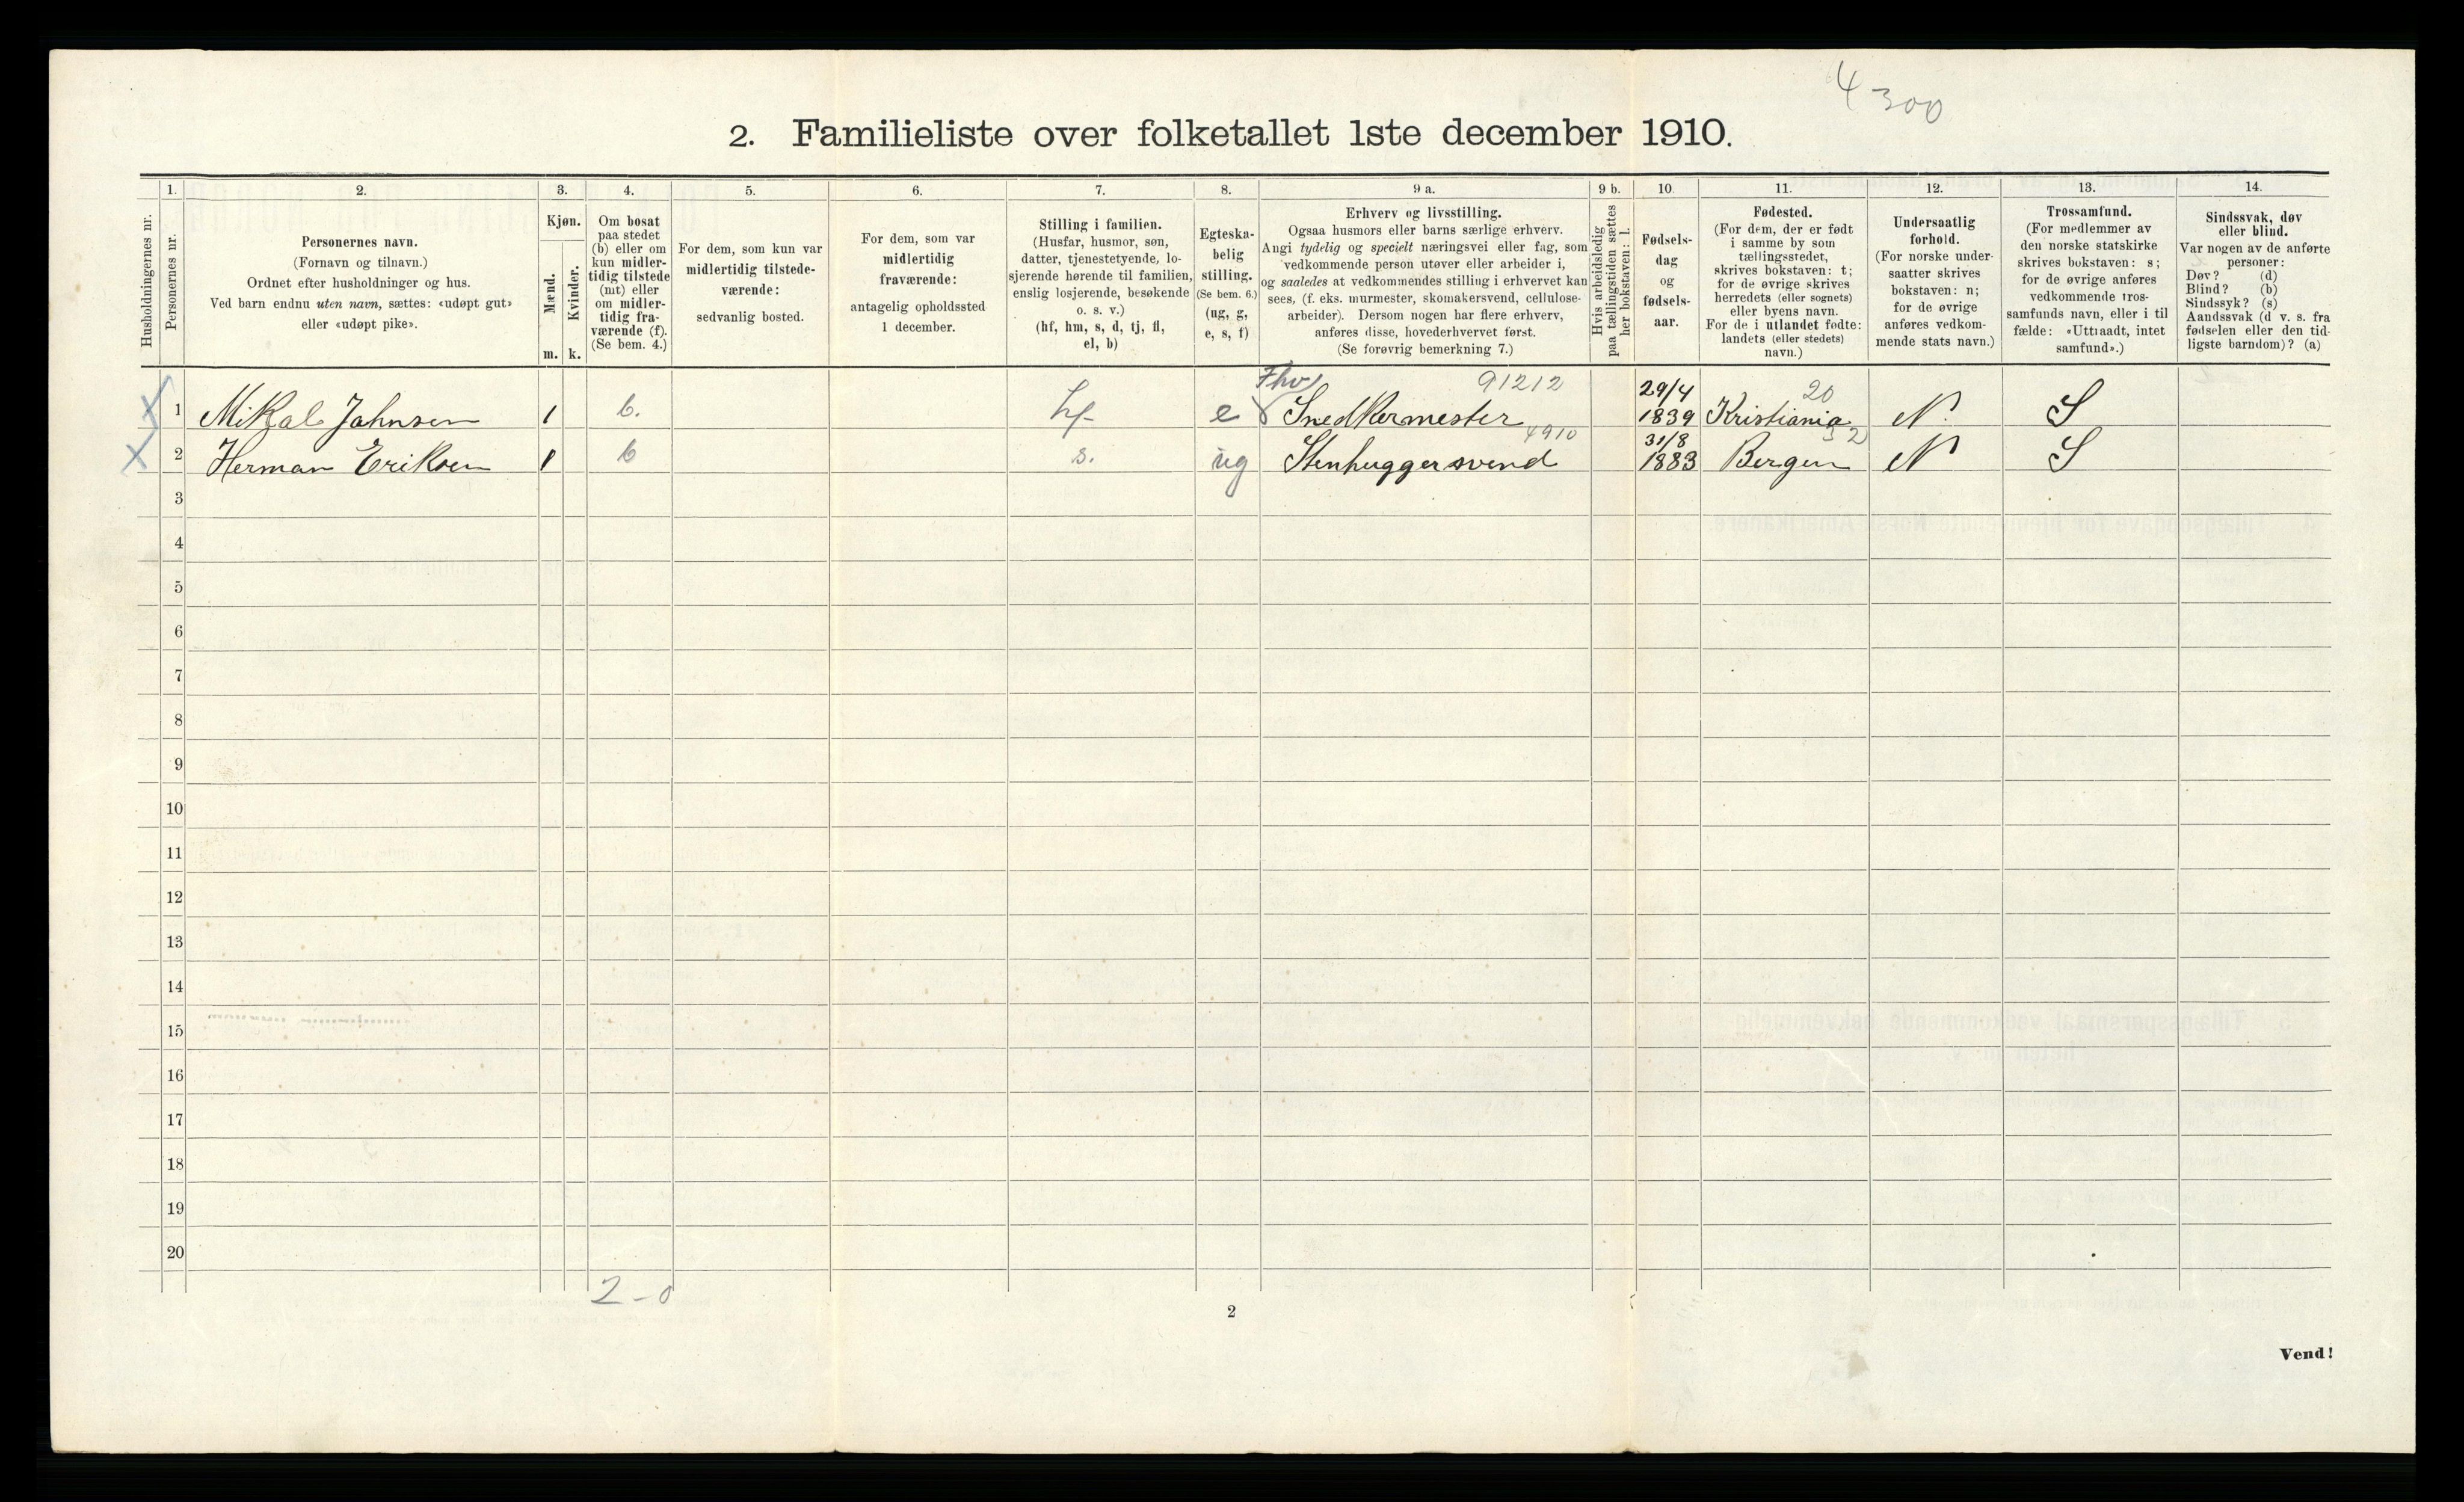 4300
2. Familieliste over folketallet 1ste december 1910.
1. 2. 3. 4. 5. 6. 7. 8. 9 a. 9 b. 10. 11. 12. 13. 14.
Husholdningernes nr.
Personernes nr.
Personernes navn.
(Fornavn og tilnavn.)
Ordnet efter husholdninger og hus.
Ved barn endnu uten navn, sættes: «udøpt gut»
eller «udøpt pike».
Kjøn.
Mænd.
Kvinder.
m. k.
Om bosat
paa stedet
(b) eller om
kun midler-
tidig tilstede
(mt) eller
om midler-
tidig fra-
værende (f).
(Se bem. 4.)
For dem, som kun var
midlertidig tilstede-
værende:
sedvanlig bosted.
For dem, som var
midlertidig
fraværende:
antagelig opholdssted
1 december.
Stilling i familien.
(Husfar, husmor, søn,
datter, tjenestetyende, lo-
sjerende hørende til familien,
enslig losjerende, besøkende
o. s. v.)
(hf, hm, s, d, tj, fl,
el, b)
Egteska-
belig
stilling.
(Se bem. 6.)
(ug, g,
e, s, f)
Erhverv og livsstilling.
Ogsaa husmors eller barns særlige erhverv.
Angi tydelig og specielt næringsvei eller fag, som
vedkommende person utøver eller arbeider i,
og saaledes at vedkommendes stilling i erhvervet kan
sees, (f. eks. murmester, skomakersvend, cellulose-
arbeider). Dersom nogen har flere erhverv,
anføres disse, hovederhvervet først.
(Se forøvrig bemerkning 7.)
Hvis arbeidsledig
paa tællingstiden sættes
her bokstaven: l.
Fødsels-
dag
og
fødsels-
aar.
Fødested.
(For dem, der er født
i samme by som
tællingsstedet,
skrives bokstaven: t;
for de øvrige skrives
herredets (eller sognets)
eller byens navn.
For de i utlandet fødte:
landets (eller stedets)
navn.)
Undersaatlig
forhold.
(For norske under-
saatter skrives
bokstaven: n;
for de øvrige
anføres vedkom-
mende stats navn.)
Trossamfund.
(For medlemmer av
den norske statskirke
skrives bokstaven: s;
for de øvrige anføres
vedkommende tros-
samfunds navn, eller i til
fælde: «Uttraadt, intet
samfund».)
Sindssvak, døv
eller blind.
Var nogen av de anførte
personer:
Døv? (d)
Blind? (b)
Sindssyk? (s)
Aandssvak (d v. s. fra
fødselen eller den tid-
ligste barndom)? (a)
Fhv 91212 29/4 20
X 1 Mikal Jahnsen 1 b. hf. e Snedkermester 1839 Kristiania N. S
4910 31/8 32
X 2 Herman Eriksen 1 b s. ug Stenhuggersvend 1883 Bergen N S
3
4
5
6
7
8
9
10
11
12
13
14
15
16
17
18
19
20
2-0
2
Vend!